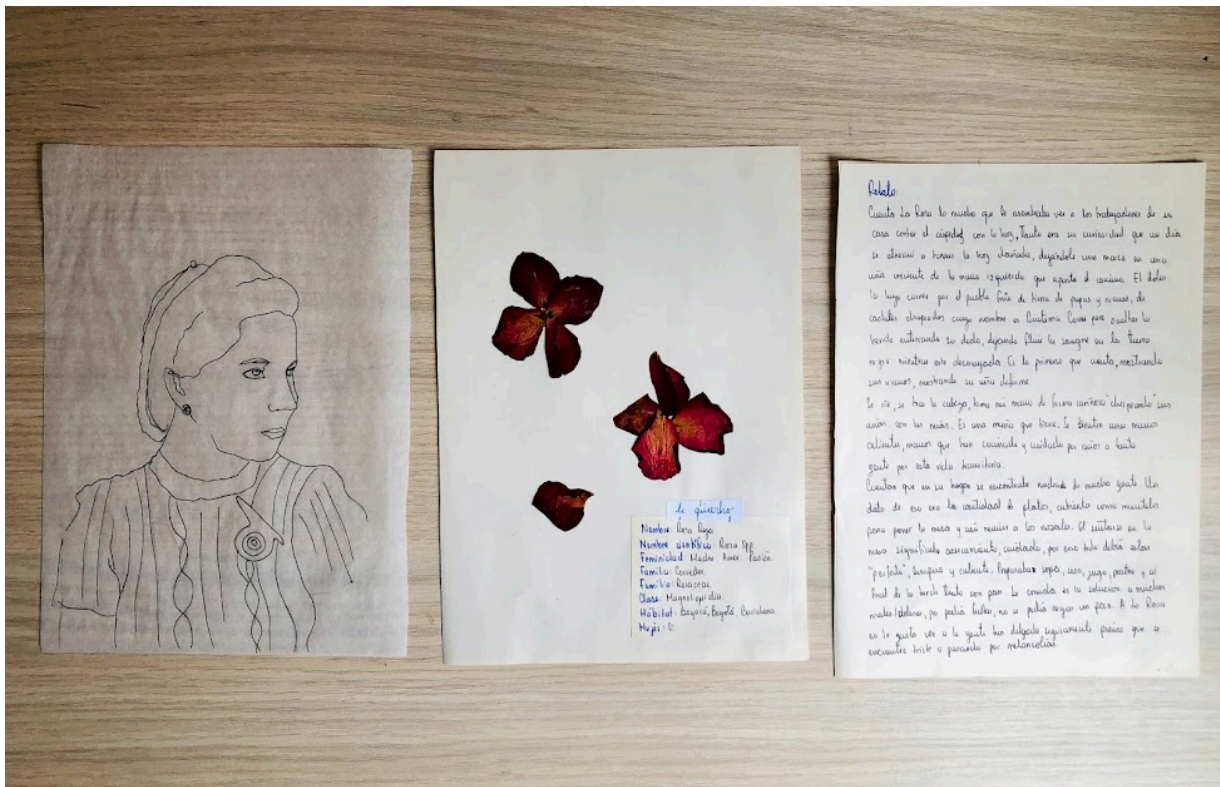 te quiero
Nombre: Rosa Roja
Nombre científico: Rosa Spp
Feminidad: Madre. Amor. Pasión.
Familia: Corredor
Familia: Rosaceae.
Clase: Magnoliopsida.
Hábitat: Boyacá, Bogotá, Barcelona.
Mujer: 
Relato
Cuenta La Rosa lo mucho que le asombraba ver a los trabajadores de su
casa cortar el césped con la hoz, Tanta era su curiosidad que un día
se atrevió a tomar la hoz dejándole una marca en una
uña creciente de la mano izquierda que apunta el camino. El dolor
la hizo correr por el pueblo frío de tierra de papas y de
cachetes chapeados cuyo nombre es para ocultar la
herida enterrando su dedo, dejando fluir la sangre en la tierra
negra mientras este desmayada. Es lo primero que cuenta, mostrando
sus manos, mostrando su uña deforme.
Se ríe, se toca la cabeza, toma mi mano de forma cariñosa sus
uñas con las mías. Es una manía que tiene. Se sienten unas manos
manos que han cocinado y cuidado por años a tanta
gente por esta vida transitoria.
Cuentan que en su hogar se encontraba rodeada de mucha gente. Un
dato de eso era la cantidad de platos, cubiertos como manteles
para poner la mesa y así reunir a los nosotros. El sentarse en la
mesa significaba acercamiento, cuidado, por eso todo debía estar
"perfecto", limpio y caliente. Preparaba sopa, seco, jugo, postre y al
final de la tarde tinto con pan. La comida es la solución a muchos
males/dolores, no podía faltar, no se podía negar un pan. A La Rosa
no le gusta ver a la gente tan delgada seguramente piensa que se
encuentra triste o pasando por melancolías.